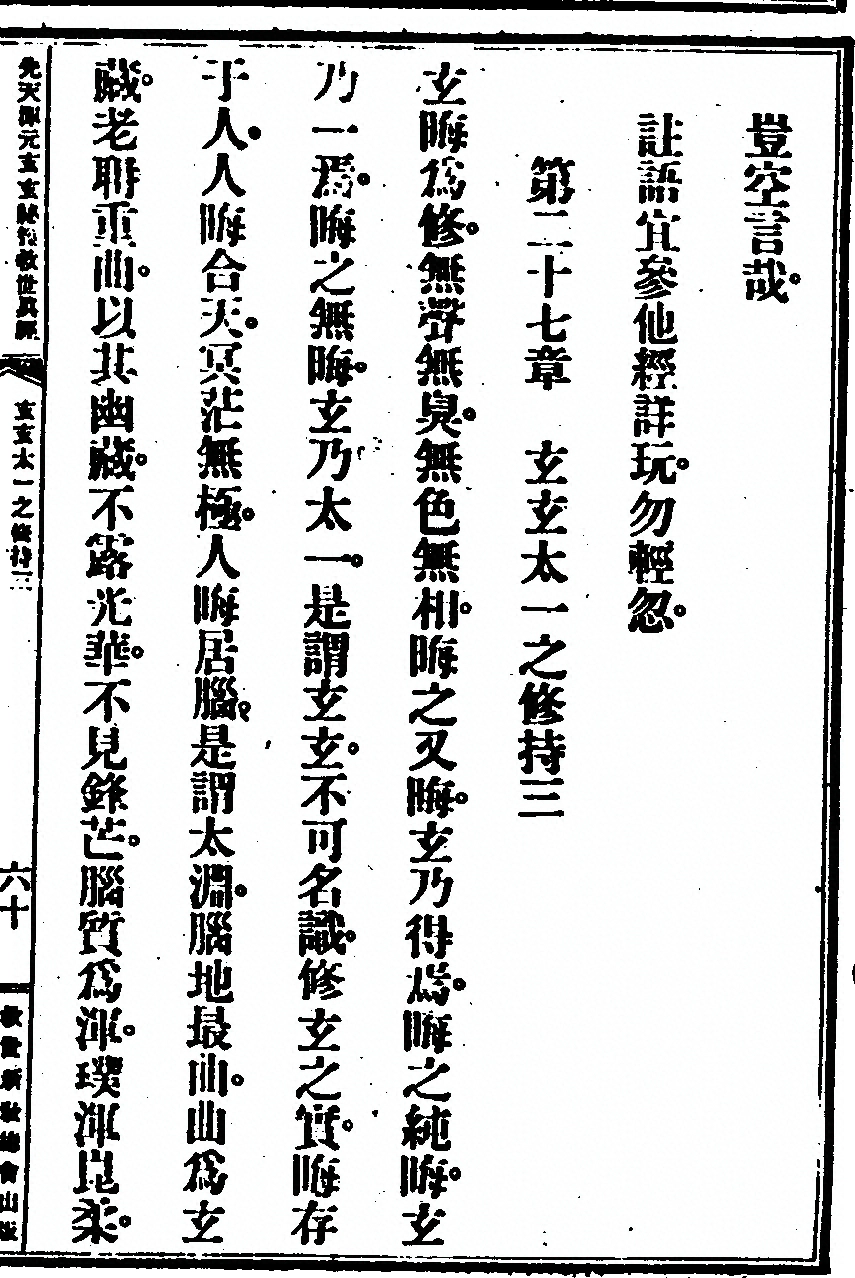 豈空言哉。
註語宜參他經詳玩。勿輕忽。
第二十七章　玄玄太一之修持三
玄晦為修。無聲無臭。無色無相。晦之又晦。玄乃得焉。晦之純晦。玄
乃一焉。晦之無晦。玄乃太一。是謂玄玄。不可名識。修玄之實。晦存
于人。人晦合天。冥茫無極。人晦居腦。是謂太淵。腦地最曲。曲為玄
藏。老聃重曲。以其幽藏。不露光華。不見鋒芒。腦質為渾。璞渾昆柔。
先天渾元玄玄秘籙救世眞經
玄玄太一之修持三
六十
救世新教總會出版